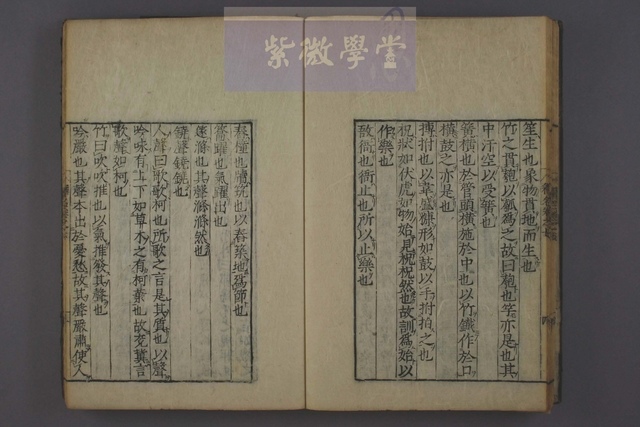 紫微學堂
笙生也象物貫地而生也
竹之貫匏以匏為之故曰匏也竽亦是也其
中汙空以受簧也
簧橫也於管頭橫施於中也以竹鐵作於口
橫鼓之亦是也
搏拊也以韋盛糠形如鼓以手拊拍之也
柷狀如伏虎如物始見柷柷然也故訓為始以
作樂也
敔衙也衙止也所以止樂也
舂撞也牘筑也以舂築地為節也
籥躍也氣躍出也
篴滌也其聲滌滌然也
鐃聲鐃鐃也
人聲曰歌歌柯也所歌之言是其質也以聲
吟咏有上下如草木之有柯葉也故兖冀言
歌聲如柯也
竹曰吹吹推也以氣推發其聲也
吟嚴也其聲本出於憂愁故其聲嚴肅使人